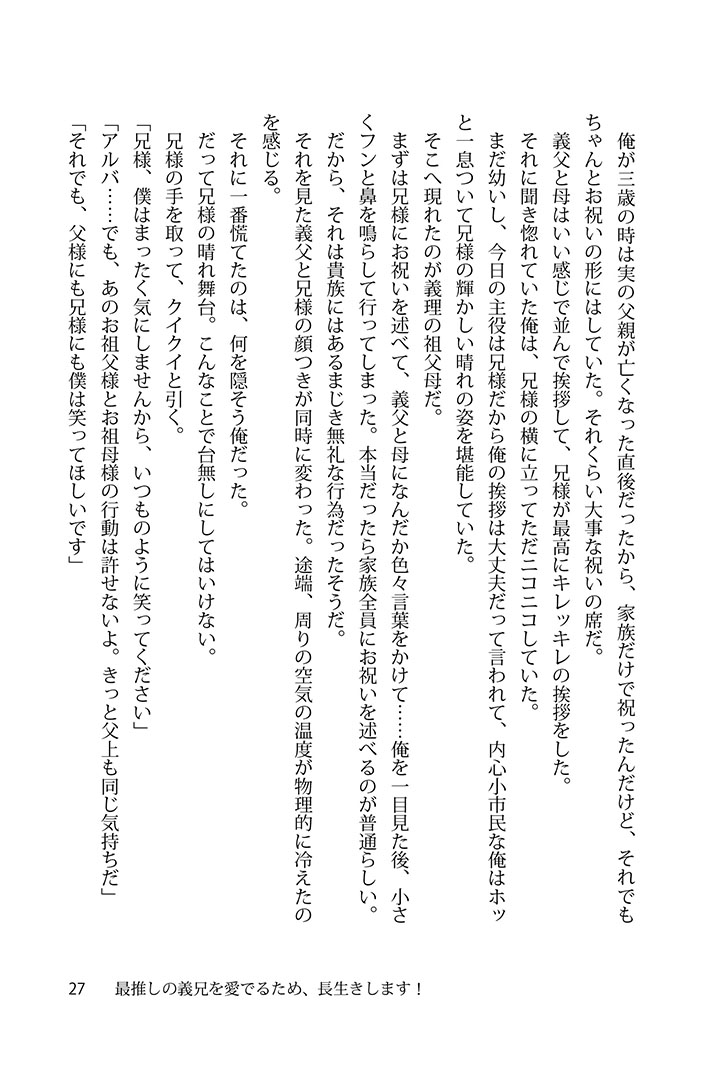 俺が三歳の時は実の父親が亡くなった直後だったから、家族だけで祝ったんだけど、それでも
ちゃんとお祝いの形にはしていた。それくらい大事な祝いの席だ。
義父と母はいい感じで並んで挨拶して、兄様が最高にキレッキレの挨拶をした。
それに聞き惚れていた俺は、兄様の横に立ってただニコニコしていた。
まだ幼いし、今日の主役は兄様だから俺の挨拶は大丈夫だって言われて、内心小市民な俺はホッ
と一息ついて兄様の輝かしい晴れの姿を堪能していた。
そこへ現れたのが義理の祖父母だ。
まずは兄様にお祝いを述べて、義父と母になんだか色々言葉をかけて……俺を一目見た後、小さ
くフンと鼻を鳴らして行ってしまった。本当だったら家族全員にお祝いを述べるのが普通らしい。
だから、それは貴族にはあるまじき無礼な行為だったそうだ。
それを見た義父と兄様の顔つきが同時に変わった。途端、周りの空気の温度が物理的に冷えたの
を感じる。
それに一番慌てたのは、何を隠そう俺だった。
だって兄様の晴れ舞台。こんなことで台無しにしてはいけない。
兄様の手を取って、クイクイと引く。
「兄様、僕はまったく気にしませんから、いつものように笑ってください」
「アルバ……でも、あのお祖父様とお祖母様の行動は許せないよ。きっと父上も同じ気持ちだ」
「それでも、父様にも兄様にも僕は笑ってほしいです」
27 最推しの義兄を愛でるため、長生きします！